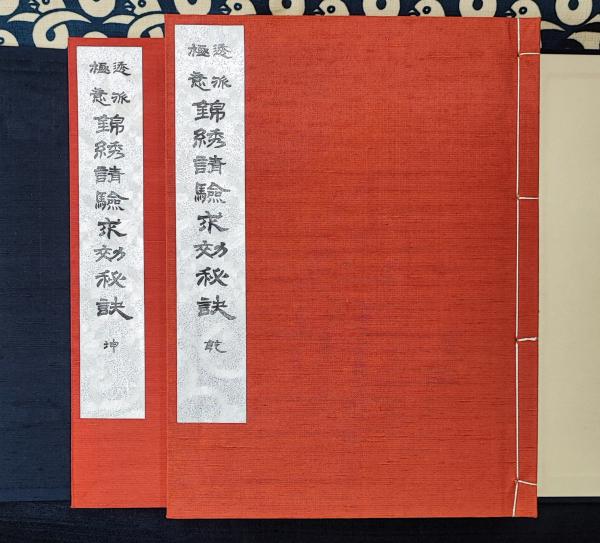 透派
極意
錦綉請驗求効秘訣
乾
透派
極意
錦綉請驗求効秘訣
坤